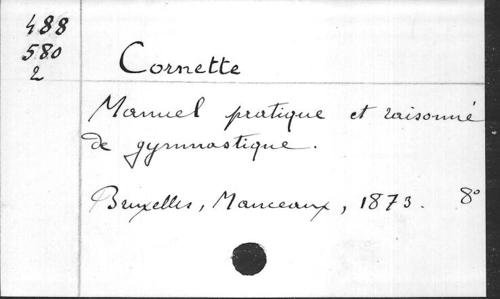 488
580
2
Cornette
Manuel pratique et raisonné
de gymnastique.
Bruxelles, Manceaux, 1873. 8°